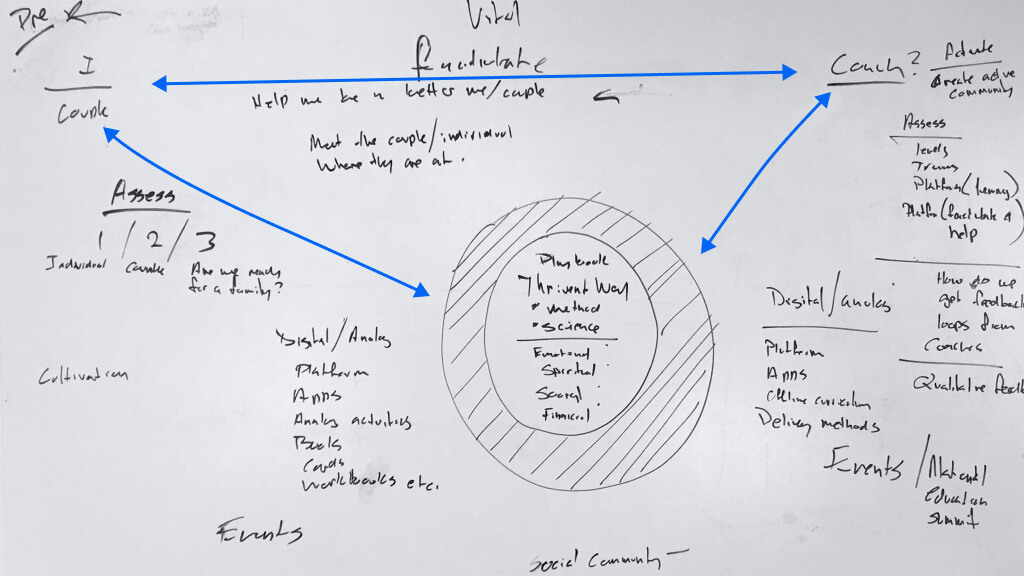 Pre
Vital
I
Couple
Facilitate
Help me be a better me/couple
Meet the couple/individual
Where they are at.
Coach?
Activate
Create active
community
Assess
levels
Trains
Platform (
Platform (facilitate &
help
Assess
1 / 2 / 3
Individual
Couple
Are we ready
for a family?
Cultivation
Digital/Analog
Platform
Apps
Analog activities
Books
Cards
Workbooks etc.
Events
Playbook
Thrivent Way
• method
• science
Emotional
Spiritual
Social
Financial
Social Community -
Digital/analog
Platform
Apps
Offline curriculum
Delivery methods
How do we
get feedback
loops from
Coaches
Qualitative
Events / National
Education
Summit